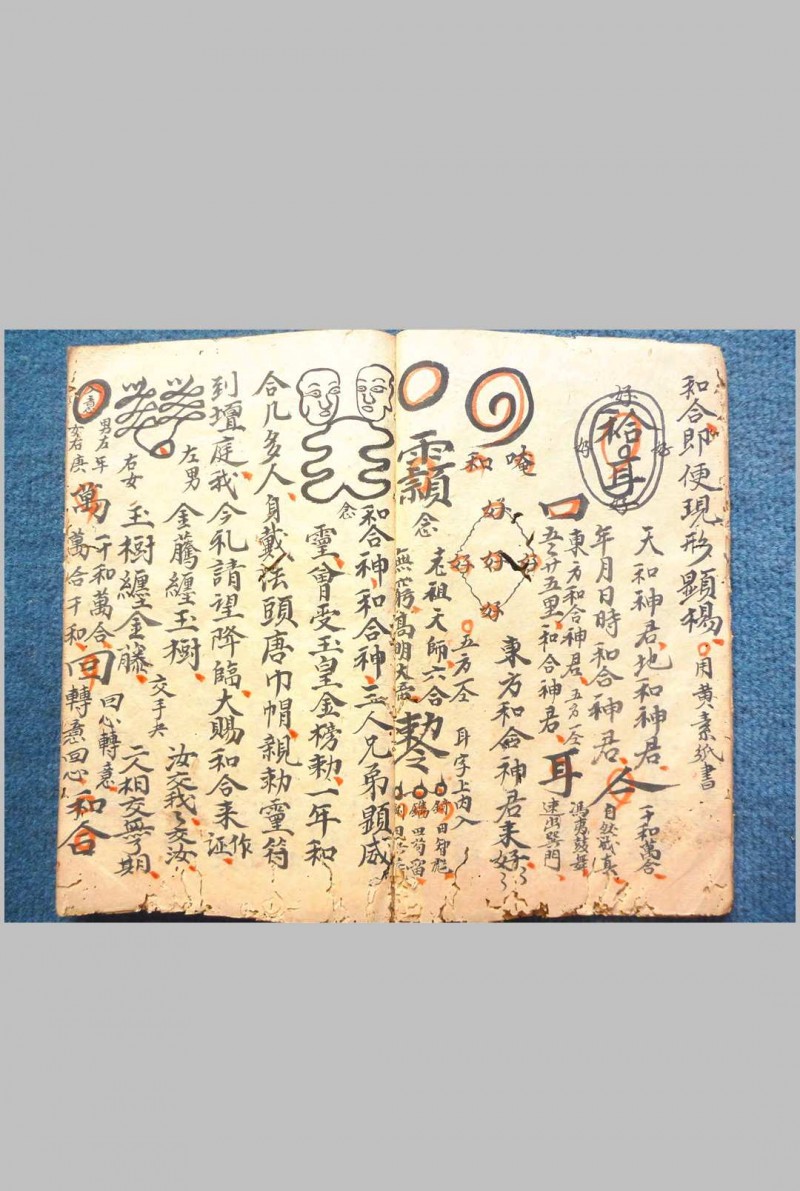 和合即便現形顯楊
用黃素紙書
好
好
袷耳
好
好
天和神君地和神君
千和萬合
年月日時和合神君
合
自然成真
東方和合神君五方仝
馮夷鼓舞
口
五五廿五里和合神君
耳
速出巽門
唵
和
好
好好好
好
東方和合神君来好
五方仝
耳字上内入
念
老祖天師六合
無窮高明大帝
勅令
和合神和合神三人兄弟顯威
念
靈曾受玉皇金榜勅一年和
合几多人身戴法頭唐巾帽親勅靈符
到壇庭我今礼請望降臨大賜和合来作証
左男
金藤纏玉樹
交手共
汝交我我交汝
右女
玉樹纏金藤
二人相交無了期
意
男左年
女右庚
萬
千和萬合
萬合千和
回
回心轉意
轉意回心
和合